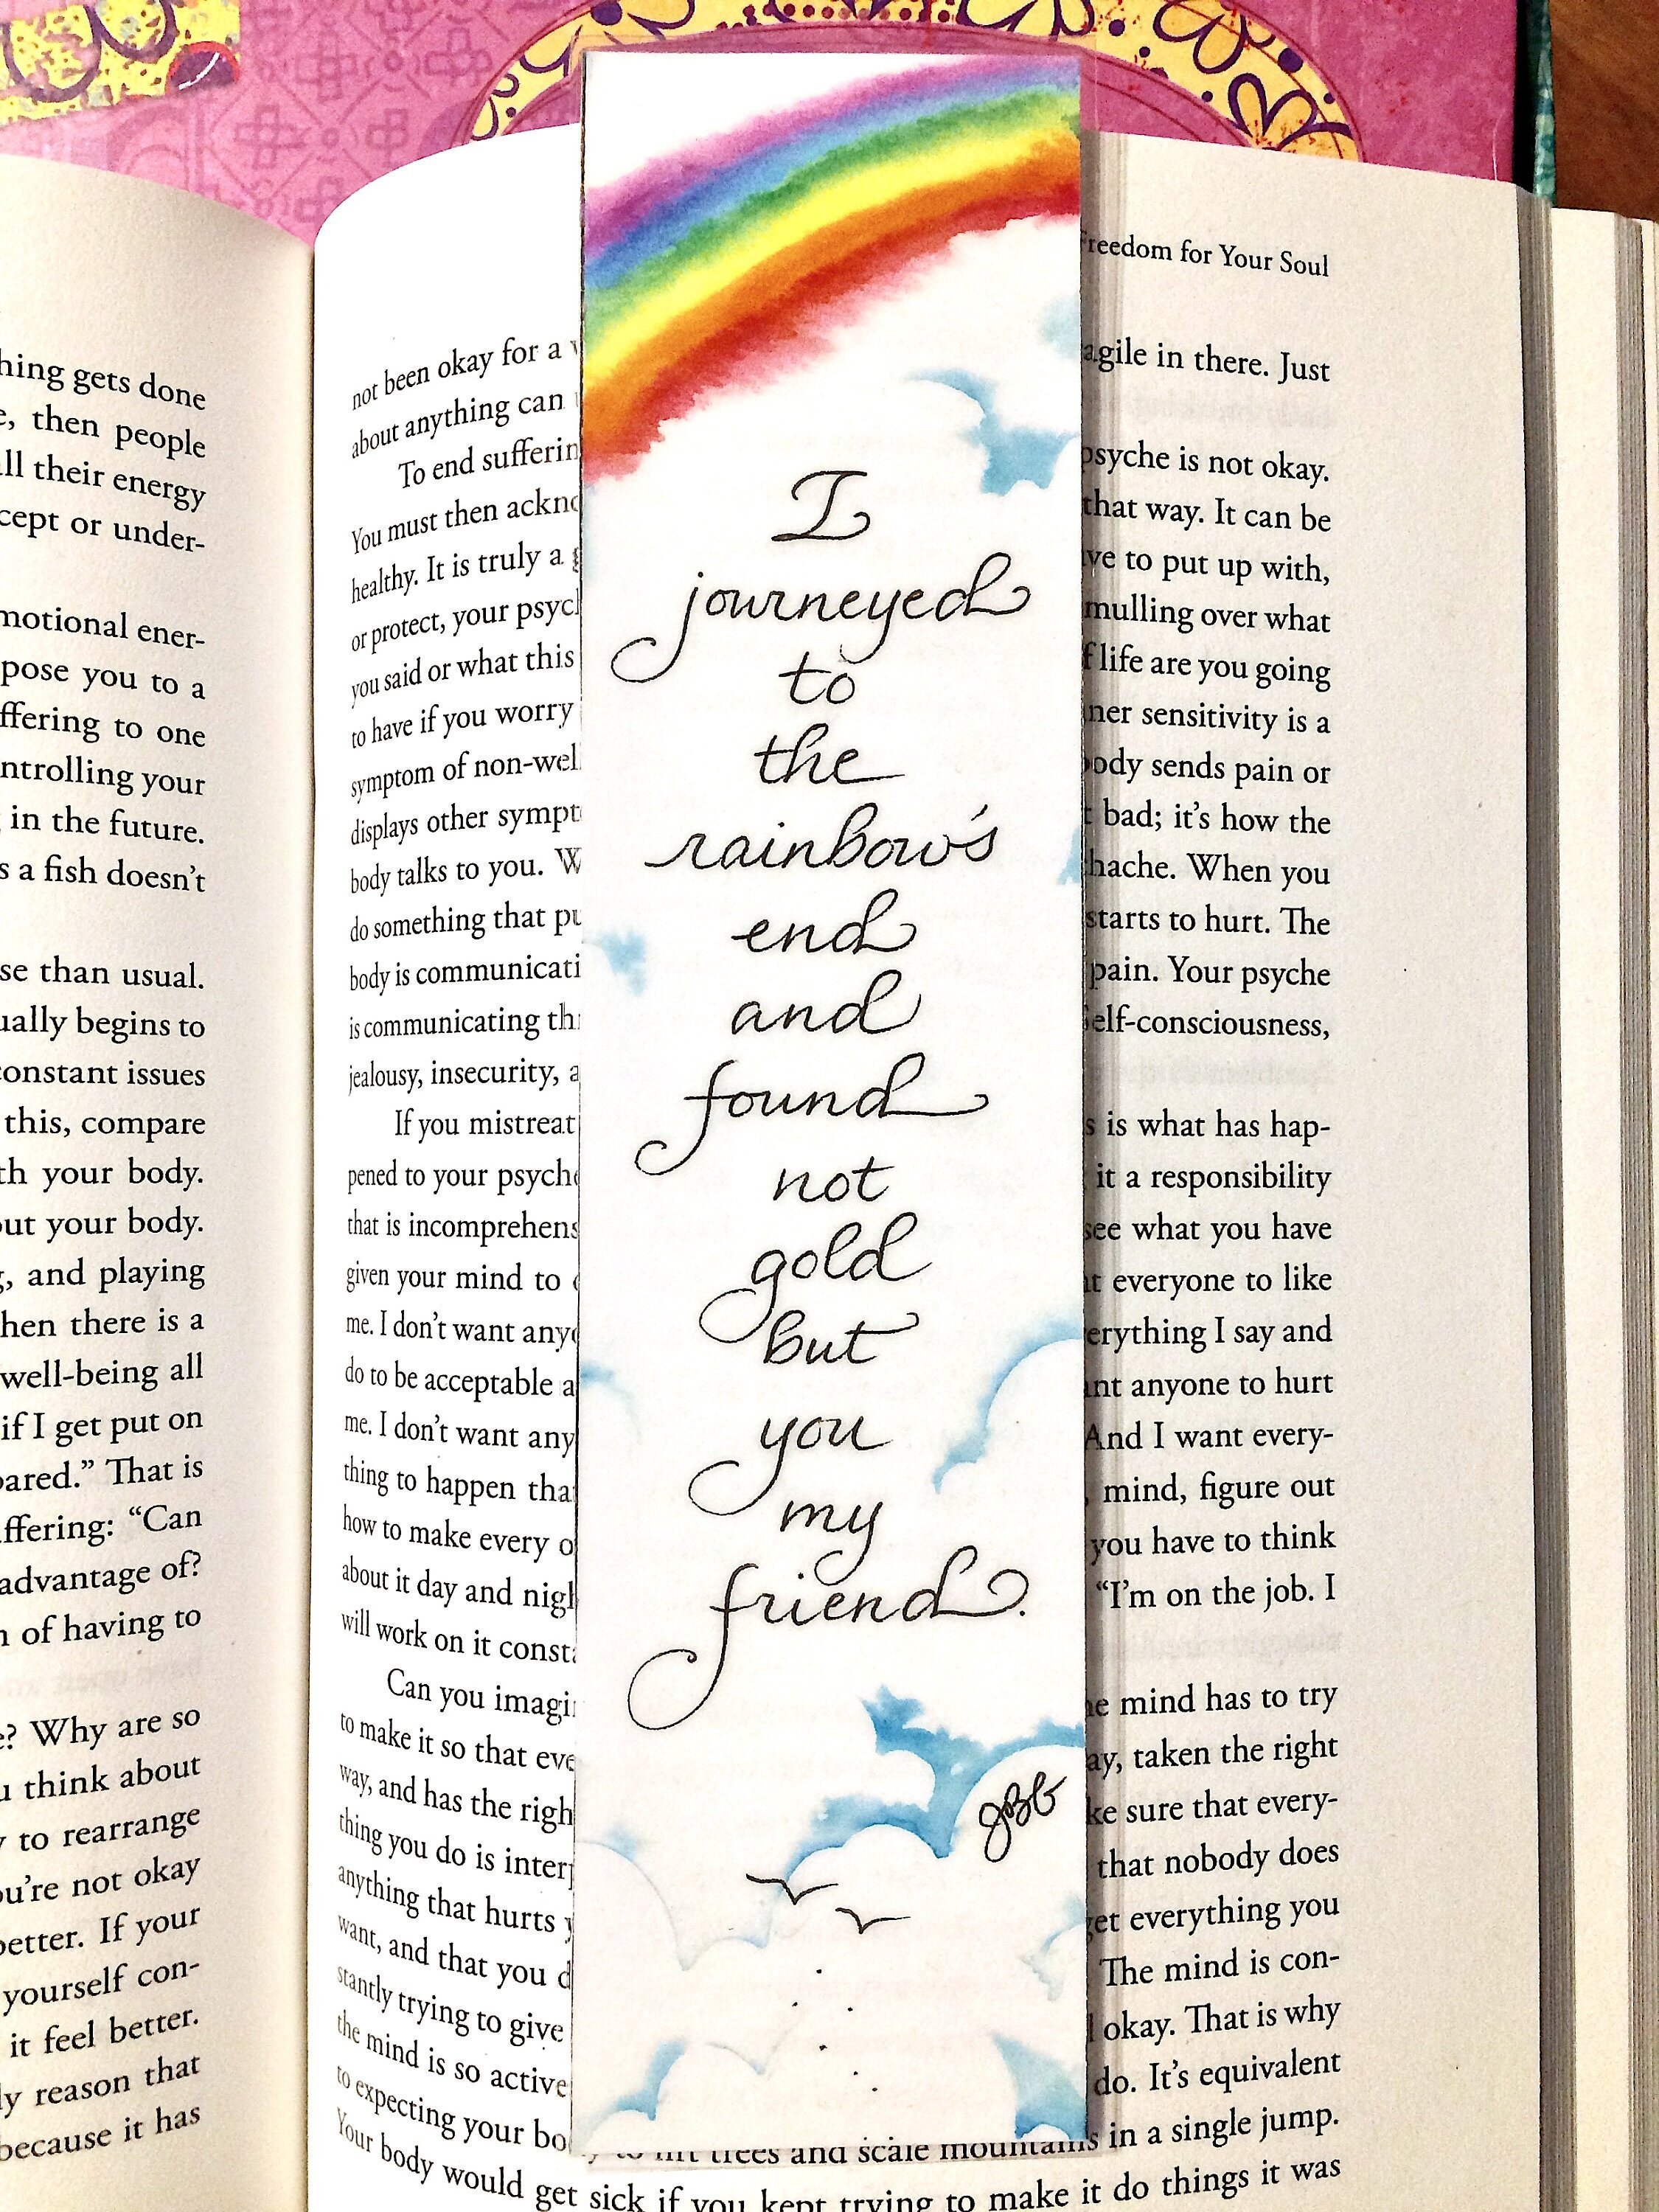 hing gets done
then people
ll their energy
cept or under-
motional ener-
pose you to a
ffering to one
ntrolling your
in the future.
s a fish doesn't
se than usual.
ually begins to
constant issues
this, compare
th your body.
out your body.
and playing
hen there is a
well-being all
if I get put on
pared.” That is
ffering: “Can
advantage of?
of having to
e? Why are so
u think about
to rearrange
ou're not okay
better. If your
yourself con-
it feel better.
ly reason that
because it has
Freedom for Your Soul
not been okay for a
agile in there. Just
about anything can
To end sufferin
psyche is not okay.
You must then ackno
that way. It can be
healthy. It is truly a
ve to put up with,
or protect, your psycl
mulling over what
you said or what this
f life are you going
to have if you worry
ner sensitivity is a
symptom of non-wel
body sends pain or
displays other sympt
bad; it's how the
body talks to you. W
hache. When you
do something that pu
starts to hurt. The
body is communicati
pain. Your psyche
is communicating thi
Self-consciousness,
jealousy, insecurity, a
If you mistreat
s is what has hap-
pened to your psyche
it a responsibility
that is incomprehens
see what you have
given your mind to
t everyone to like
me. I don't want anyo
erything I say and
do to be acceptable a
nt anyone to hurt
me. I don't want any
And I want every-
thing to happen tha
mind, figure out
how to make every o
you have to think
about it day and nigh
“I'm on the job. I
will work on it consta
Can you imagi
he mind has to try
to make it so that eve
ay, taken the right
way, and has the righ
ke sure that every-
thing you do is interp
that nobody does
anything that hurts y
get everything you
want, and that you d
The mind is con-
stantly trying to give
okay. That is why
the mind is so active
do. It's equivalent
to expecting your bo y to lift trees and scale mountains in a single jump.
Your body would get sick if you kept trying to make it do things it was
I
journeyed
to
the
rainbow's
end
and
found
not
gold
but
you
my
friend.
JBG